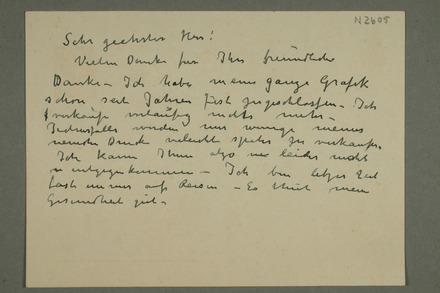 N2605
Sehr geehrter Herr!
Vielen Dank für Ihre freundliche
Danke - Ich habe meine ganze Grafik
schon seit Jahren fest zugeschlossen - Ich
verkaufe vorläufig nichts mehr -
Jedenfalls werden nur wenige meines
neuen Drucke vielleicht später zu verkaufen
Ich kann Ihnen also nur leider nicht
entgegenkommen - Ich bin letzter Zeit
fast immer auf Reisen - Es thut mein
Gesundheit gut -